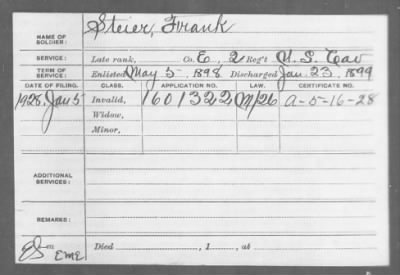 Steier, Frank
NAME OF
SOLDIER:
SERVICE: Late rank, Co. E, 2 Reg't U. S. Cav
TERM OF
SERVICE: Enlisted May 5, 1898 Discharged Jan. 23, 1899
DATE OF FILING. CLASS. APPLICATION NO. LAW. CERTIFICATE NO.
1928, Jan 5 Invalid, 1601322 M/26 A-5-16-28
Widow,
Minor,
ADDITIONAL
SERVICES:
REMARKS:
EME Died , 1 , at